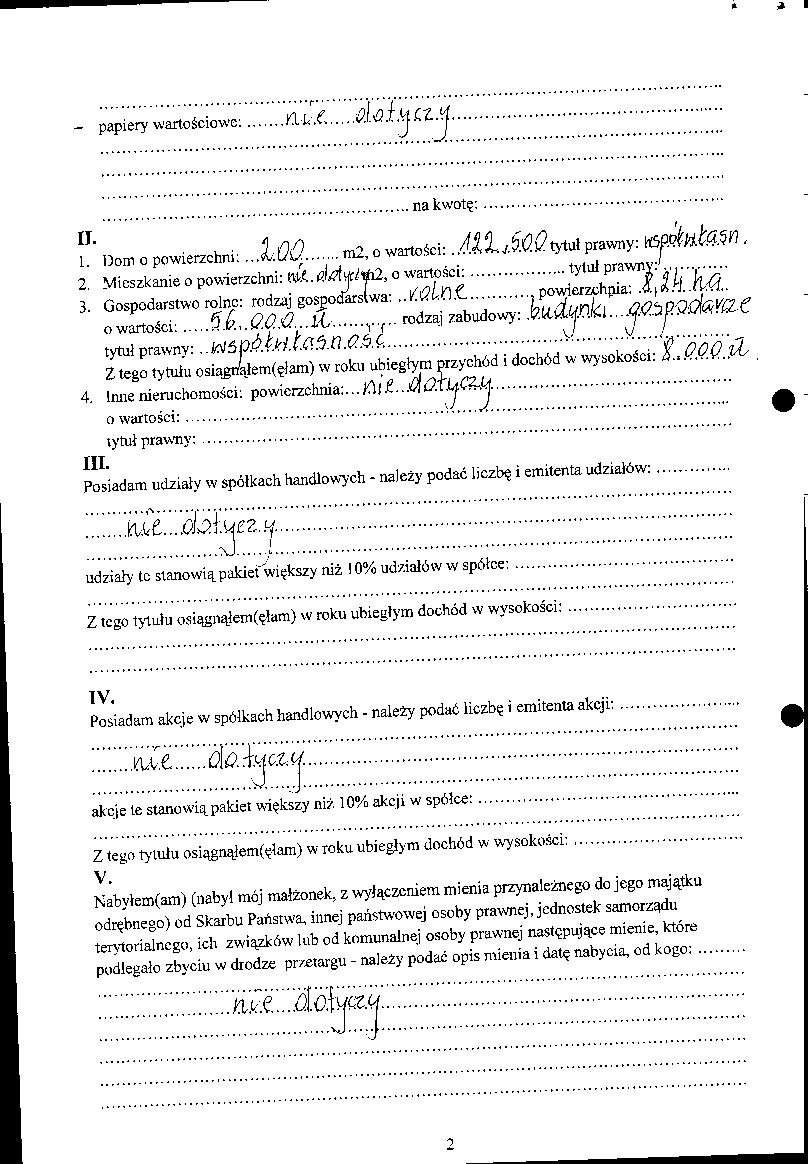 - papiery wartościowe: ......nie.....dotyczy......
...... na kwotę: ......
II.
1. Dom o powierzchni: ...200...... m2, o wartości: ..122,500 tytuł prawny: współwłasn.
2. Mieszkanie o powierzchni: nie dotyczy m2, o wartości: .................. tytuł prawny: ..........
3. Gospodarstwo rolne: rodzaj gospodarstwa: ..rolne............, powierzchnia: .8,24 ha..
o wartości: .....56..000..zł........., rodzaj zabudowy: budynki...gospodarcze
tytuł prawny: ..współwłasność......
Z tego tytułu osiągnąłem(ęłam) w roku ubiegłym przychód i dochód w wysokości: 8.000 zł.
4. Inne nieruchomości: powierzchnia:...nie..dotyczy......
o wartości: ......
tytuł prawny: ......
III.
Posiadam udziały w spółkach handlowych - należy podać liczbę i emitenta udziałów: ..............
.......nie...dotyczy......
udziały te stanowią pakiet większy niż 10% udziałów w spółce: ......
Z tego tytułu osiągnąłem(ęłam) w roku ubiegłym dochód w wysokości: ......
IV.
Posiadam akcje w spółkach handlowych - należy podać liczbę i emitenta akcji: ......
.......nie......dotyczy......
akcje te stanowią pakiet większy niż 10% akcji w spółce: ......
Z tego tytułu osiągnąłem(ęłam) w roku ubiegłym dochód w wysokości: ......
V.
Nabyłem(am) (nabył mój małżonek, z wyłączeniem mienia przynależnego do jego majątku
odrębnego) od Skarbu Państwa, innej państwowej osoby prawnej, jednostek samorządu
terytorialnego, ich związków lub od komunalnej osoby prawnej następujące mienie, które
podlegało zbyciu w drodze przetargu - należy podać opis mienia i datę nabycia, od kogo: .........
......nie...dotyczy......
2